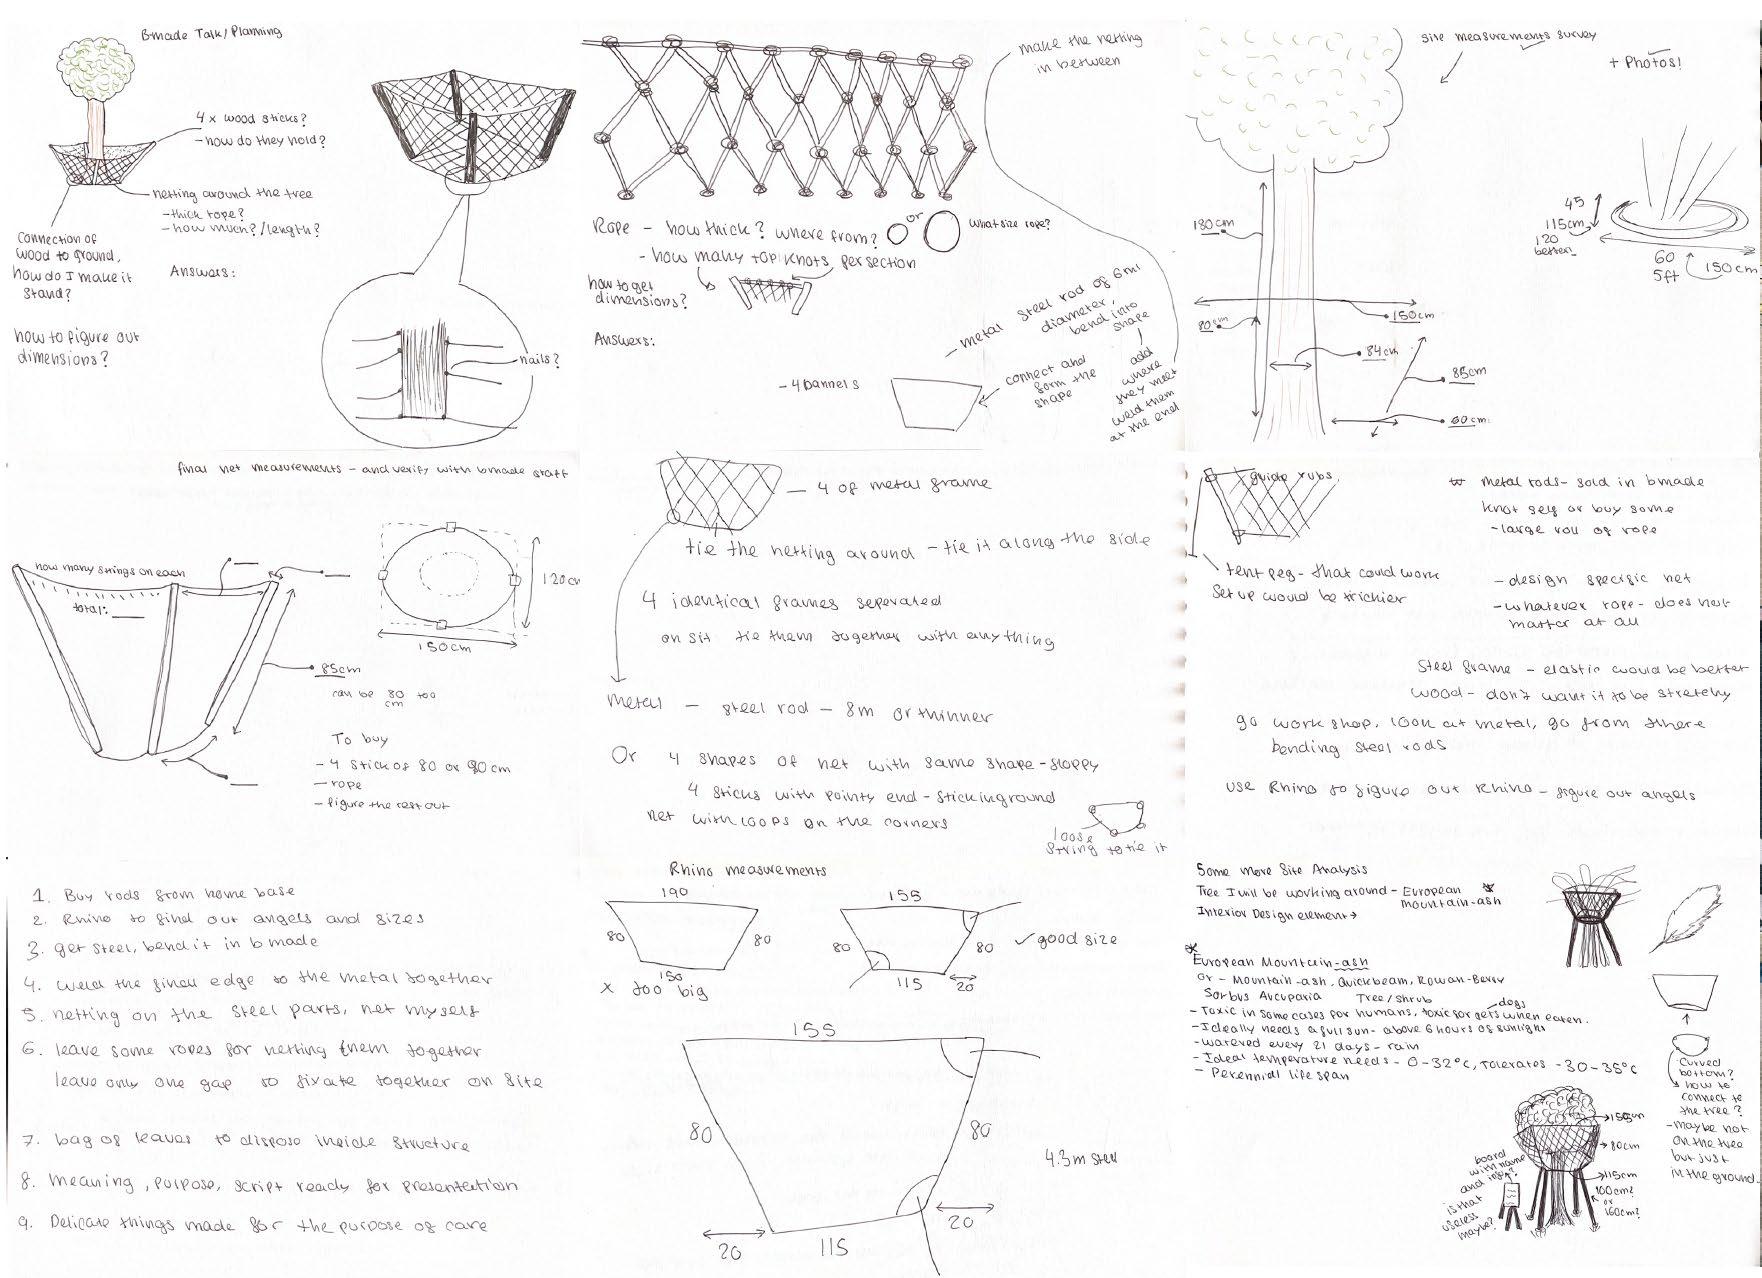 B-made Talk/Planning
4 x wood sticks?
-how do they hold?
netting around the tree
-thick rope?
-how much?/length?
Connection of
wood to ground,
how do I make it
stand?
Answers:
how to figure out
dimensions?
nails?
make the netting
in between
Rope - how thick? where from?
or
what size rope?
- how many top knots per section
how to get
dimensions?
Answers:
- metal steel rod of 6ml
diameter,
bend into
shape
add
where
they meet
weld them
at the end
connect and
form the
shape
- 4 pannels
site measurements survey
+ Photos!
180cm
80cm
150cm
84cm
85cm
60cm
45
115cm
120
better
60
5ft
150cm
final net measurements - and verify with bmade staff
how many strings on each
total:
120cm
150cm
85cm
can be 80 too
cm
To buy
- 4 stick of 80 or 90cm
- rope
- figure the rest out
- 4 of metal frame
tie the netting around - tie it along the side
4 identical frames seperated
on sit tie them together with anything
Metal - steel rod - 8m or thinner
Or 4 shapes of net with same shape - sloppy
4 sticks with pointy end - stick in ground
net with loops on the corners
loose
string to tie it
guide rubs
metal rods - sold in bmade
knot self or buy some
- large roll of rope
tent peg - that could work
Set up would be trichier
- design specific net
- whatever rope - does not
matter at all
Steel frame - elastic would be better
wood - don't want it to be stretchy
go work shop, look at metal, go from there
bending steel rods
use Rhino to figure out Rhino - figure out angels
1. Buy rods from home base
2. Rhino to find out angels and sizes
3. get steel, bend it in b made
4. weld the final edge to the metal together
5. netting on the steel parts, net myself
6. leave some ropes for netting them together
leave only one gap to fixate together on site
7. bag of leaves to dispose inside structure
8. meaning, purpose, script ready for presentation
9. Delicate things made for the purpose of care
Rhino measurements
190
80
80
150
x too big
155
80
80
115
20
✓ good size
155
80
80
4.3m steel
20
115
20
Some more Site Analysis
Tree I will be working around - European
mountain-ash
Interior Design element →
European Mountain-ash
or - Mountain-ash, Quickbeam, Rowan-Berry
Sorbus Aucuparia Tree/Shrub
dogs
- Toxic in some cases for humans, toxic for pets when eaten.
- Ideally needs a full sun - above 6 hours of sunlight
- watered every 21 days - rain
- Ideal temperature needs - 0-32°C, Tolerates -30-35°C
- Perennial life span
curved
bottom?
how to
connect to
the tree?
- maybe not
on the tree
but just
in the ground.
150cm
80cm
115cm
100cm?
or
160cm?
board
with name
and info?
is that
useless
maybe?